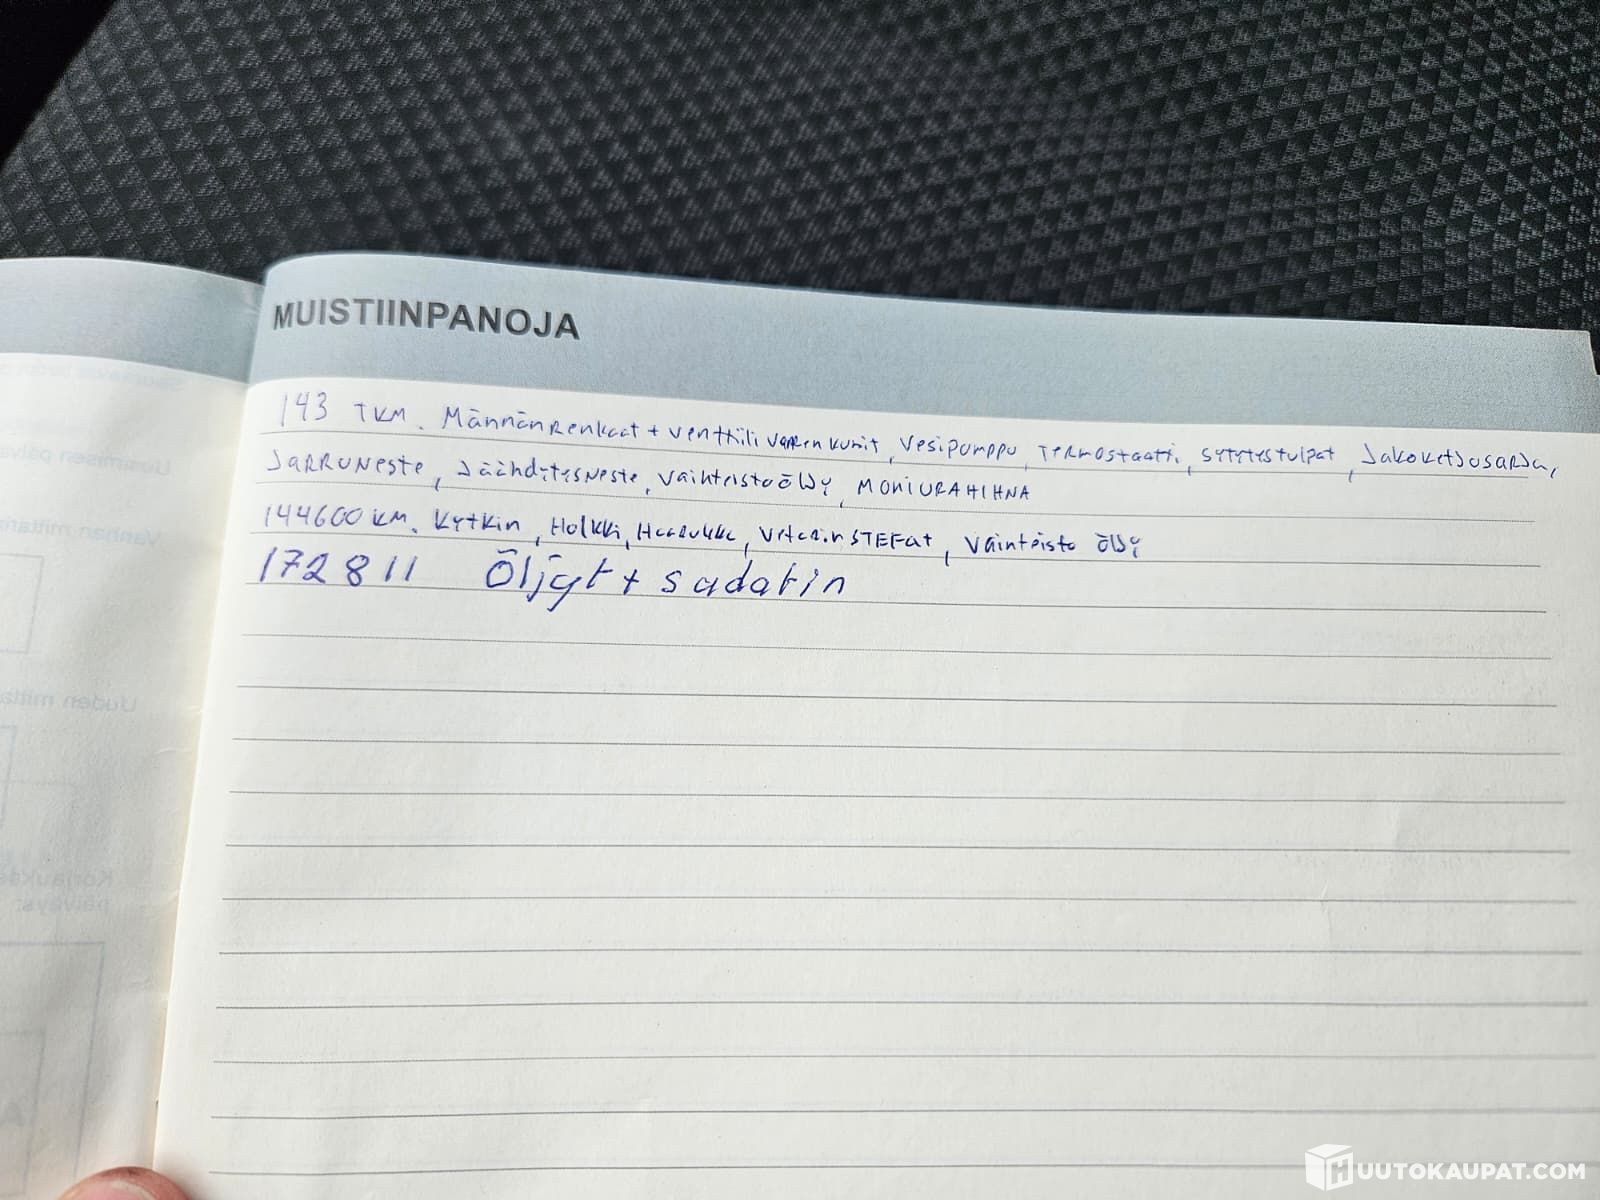 MUISTIINPANOJA
143 TKM. Männänrenkaat + venttiili varren kumit, vesipumppu, termostaatti, sytytystulpat, Jakoketjusarja,
Jarruneste, Jäähdytysneste, vaihteistoöljy, MONIURAHIHNA
144600 KM. Kytkin, Holkki, Haarukka, vetarin STEFAt, vaihteisto öljy
172811 Öljyt + sudatin
Uusimisen päivä
Vanhan mittarin
Uuden mitta
Korjauks
päiväys:
HUUTOKAUPAT.COM